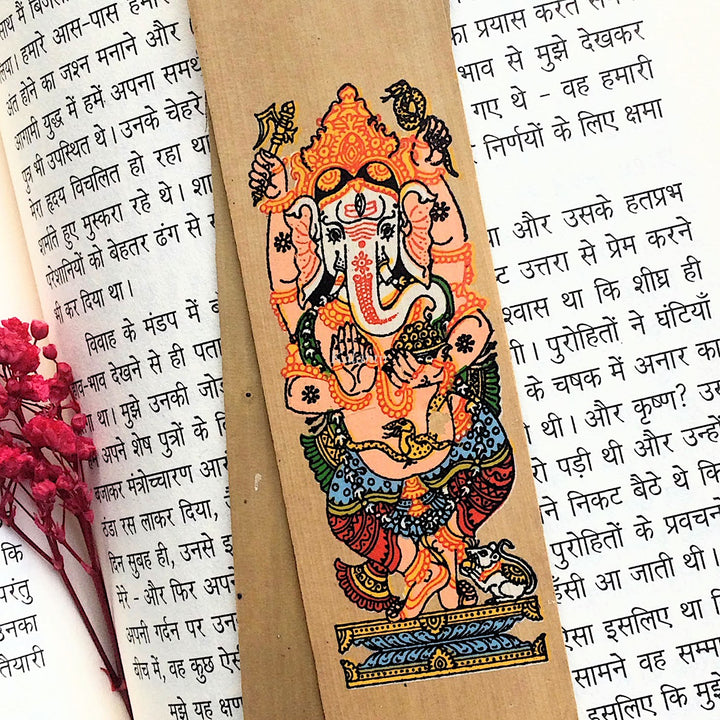 साथ मैं
हमारे आस-पास हमारे
अंत होने का जश्न मनाने और
आगामी युद्ध में हमें अपना
पुत्र भी उपस्थित थे। उनके चेहरे
मेरा हृदय विचलित हो रहा था
हुए मुस्करा रहे थे।
परेशानियों को बेहतर ढंग से
भी कर दिया था।
विवाह के मंडप में
हाव-भाव देखने से ही पता
था। मुझे उनकी
अपने शेष पुत्रों के
बजाकर मंत्रोच्चारण
ठंडा रस लाकर दिया,
दिन सुबह ही, उनसे
मेरे - और फिर
अपनी गर्दन पर
बीच में, वह कुछ ऐसे
मुझे यह क्षण
कि
परंतु
उनका
तैयारी
का प्रयास करते
भाव से मुझे देखकर
गए थे - वह हमारी
निर्णयों के लिए क्षमा
और उसके हतप्रभ
उत्तरा से प्रेम करने
था कि शीघ्र ही
। पुरोहितों ने घंटियाँ
के चषक में अनार का
थी। और कृष्ण?
पड़ी थी और उन्हों
ने निकट बैठे थे कि
पुरोहितों के प्रवचनों
आ जाती थी।
इसलिए था
सामने वह
इसलिए कि मुझे